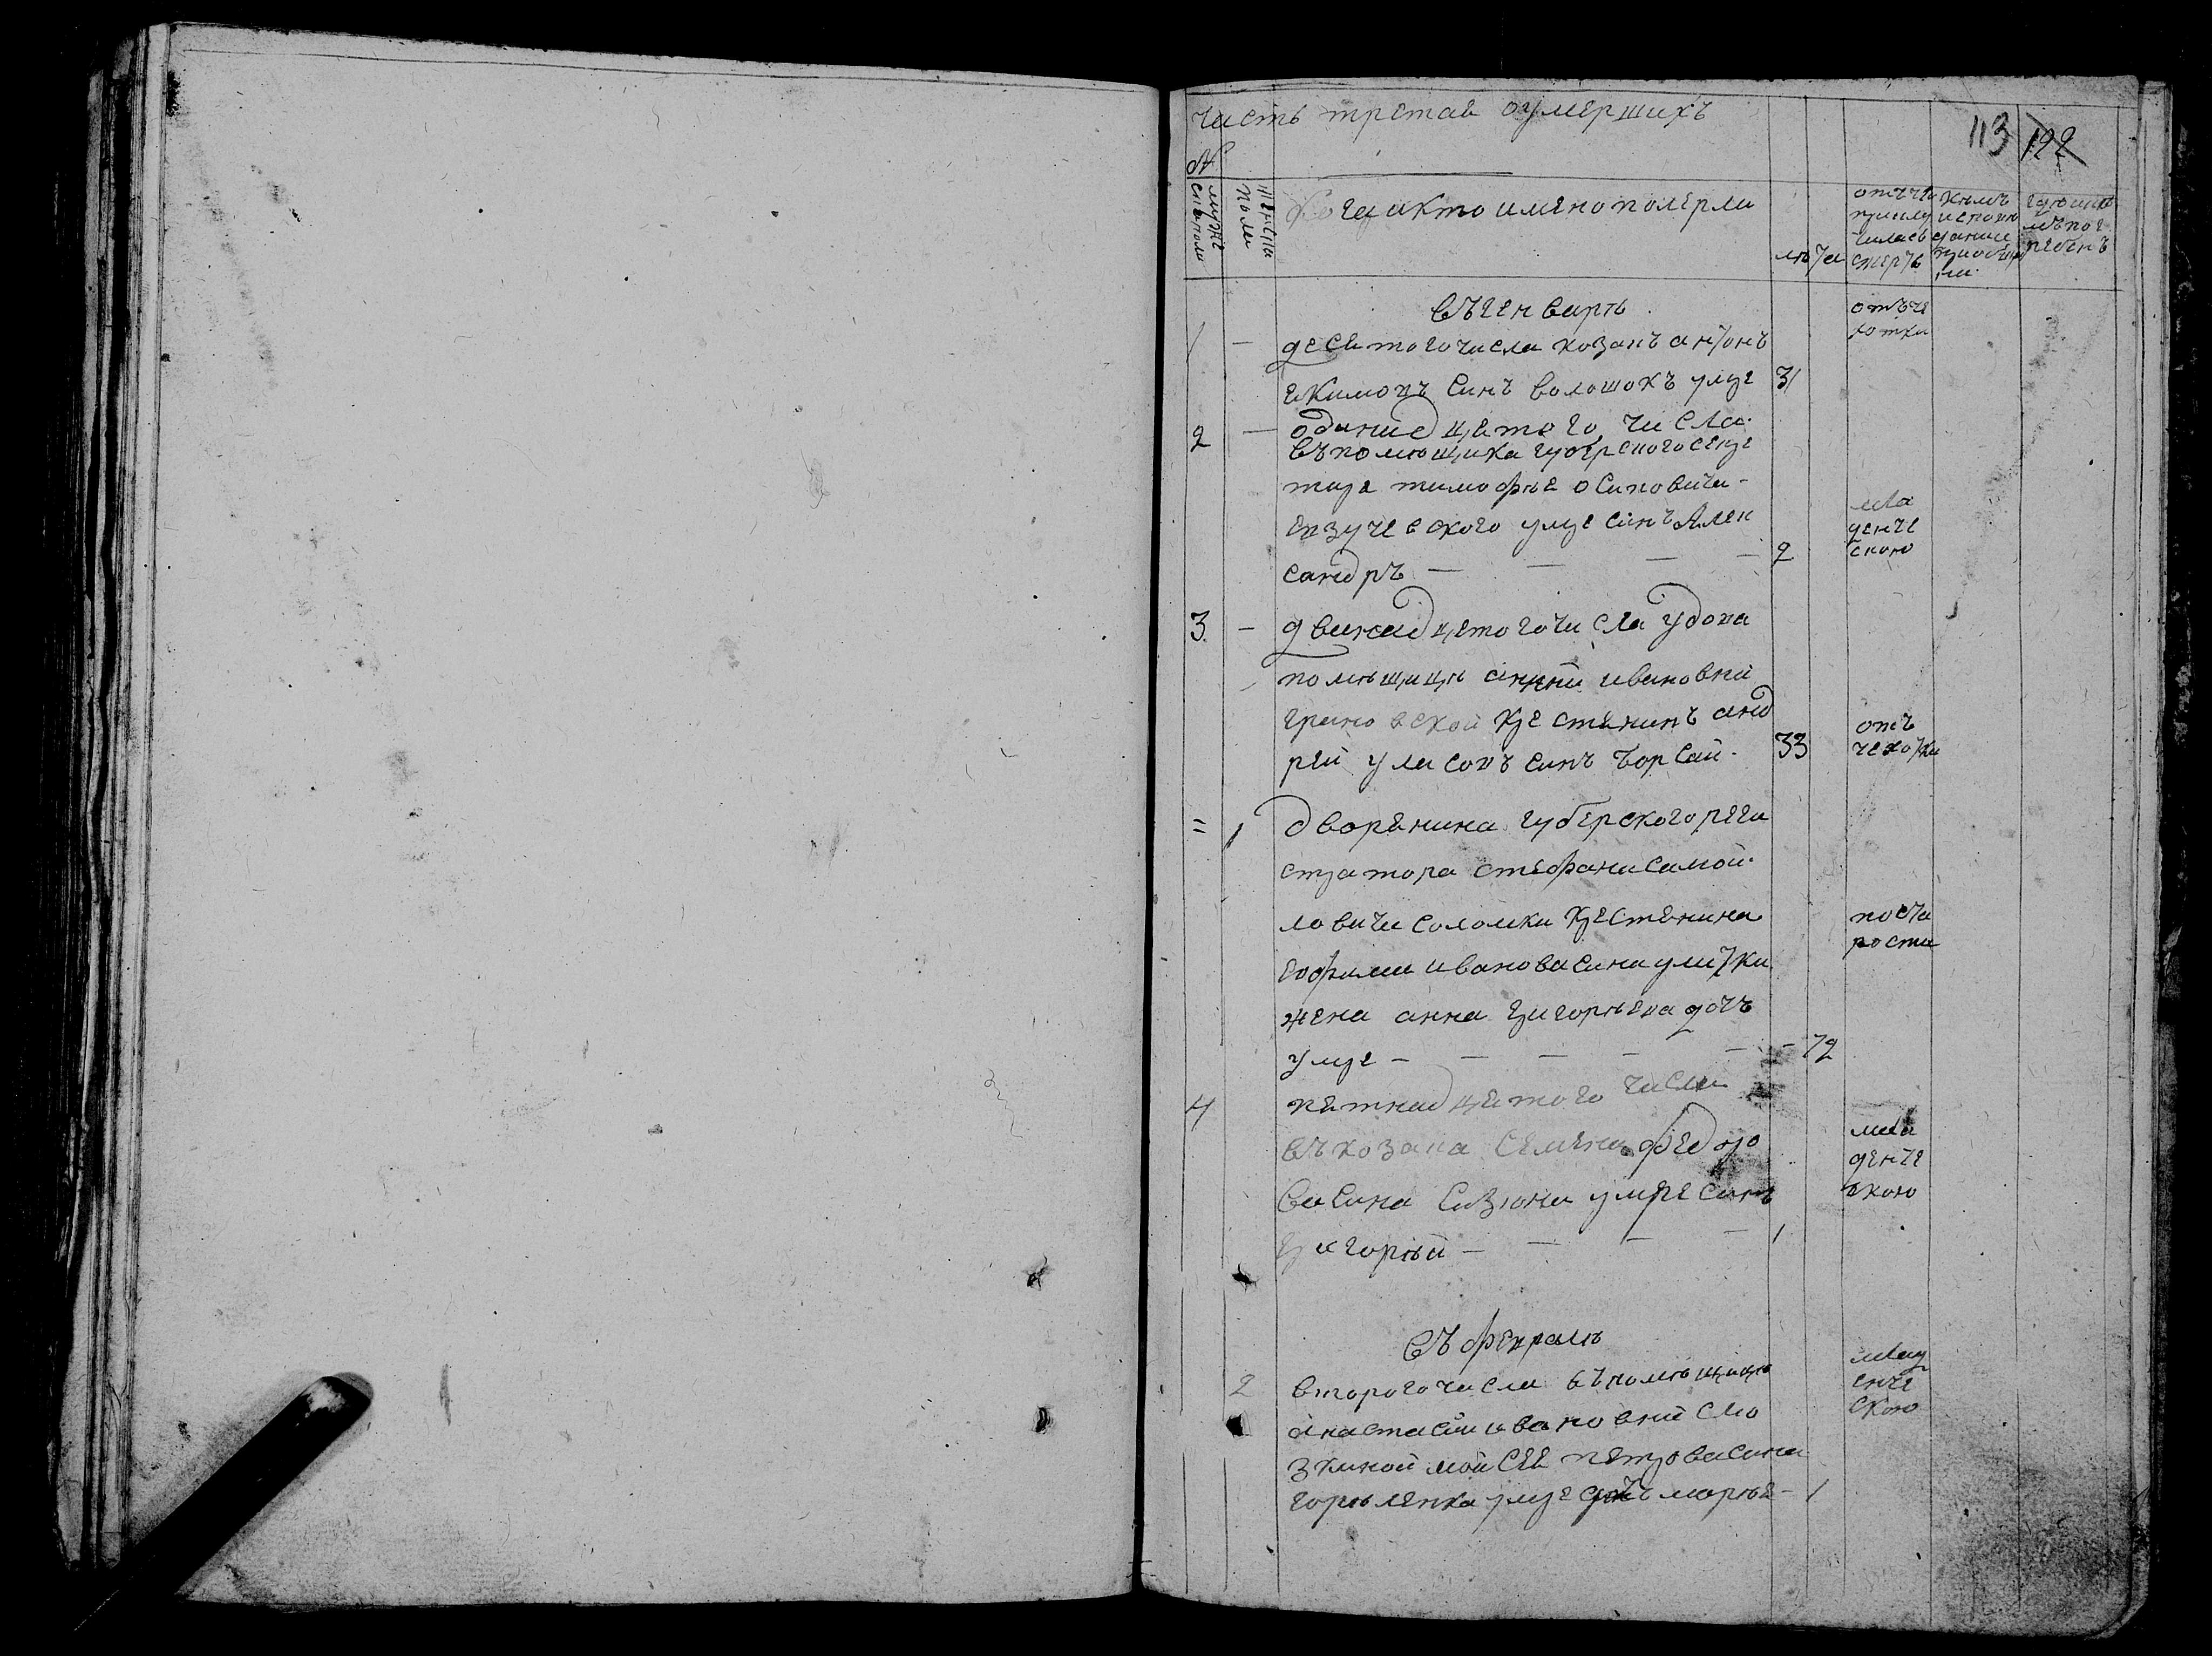 часть третая оумершихъ
113 122
№
мужеска поли
женска поли
Когда и кто имено померли
лѣта
отъ чего приклучиласъ смерть
кемъ исповиданы и приобщены
где и кемъ погребенъ
въ генварѣ
1 - десятого числа козакъ антонъ
якимовъ синъ волошокъ умре 31 отъ чехотки
2 - одинадцятого числа
въ помѣщика губерского секре
таря тимофѣя осиповича
умре синъ Алек
сандръ - - - - 2 младенческою
3 - двинадцятого числа у дома
помѣщицѣ анни ивановни
крестянинъ анд
рей власовъ синъ борсай 33 отъ чехотки
" 1 дворянина губерского реги
стратора стефана самой
ловича соломки крестянина
ефима иванова сина улитки
жена анна григорѣева дочъ
умре - - - - - 72 по старости
4 пятнадцятого числа
въ козака семена федоро
ва сина сизона умре синъ
григорѣй - - - - 1 младенческою
въ февралѣ
2 второго числа въ помѣщицѣ
анастасии ивановни сло
зкиной мойсея петрова сина
умре дочъ марѣя - 1 младенческою